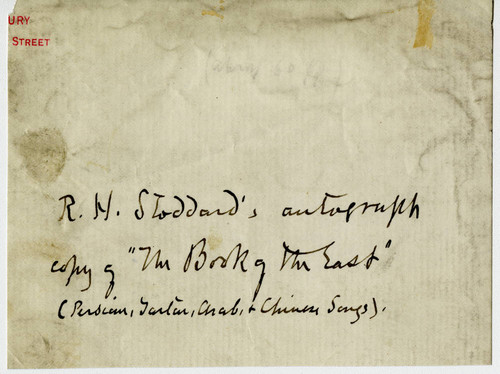 URY
STREET
R. H. Stoddard's autograph
copy of "The Book of the East"
(Persian, Tartar, Arab, + Chinese Songs).